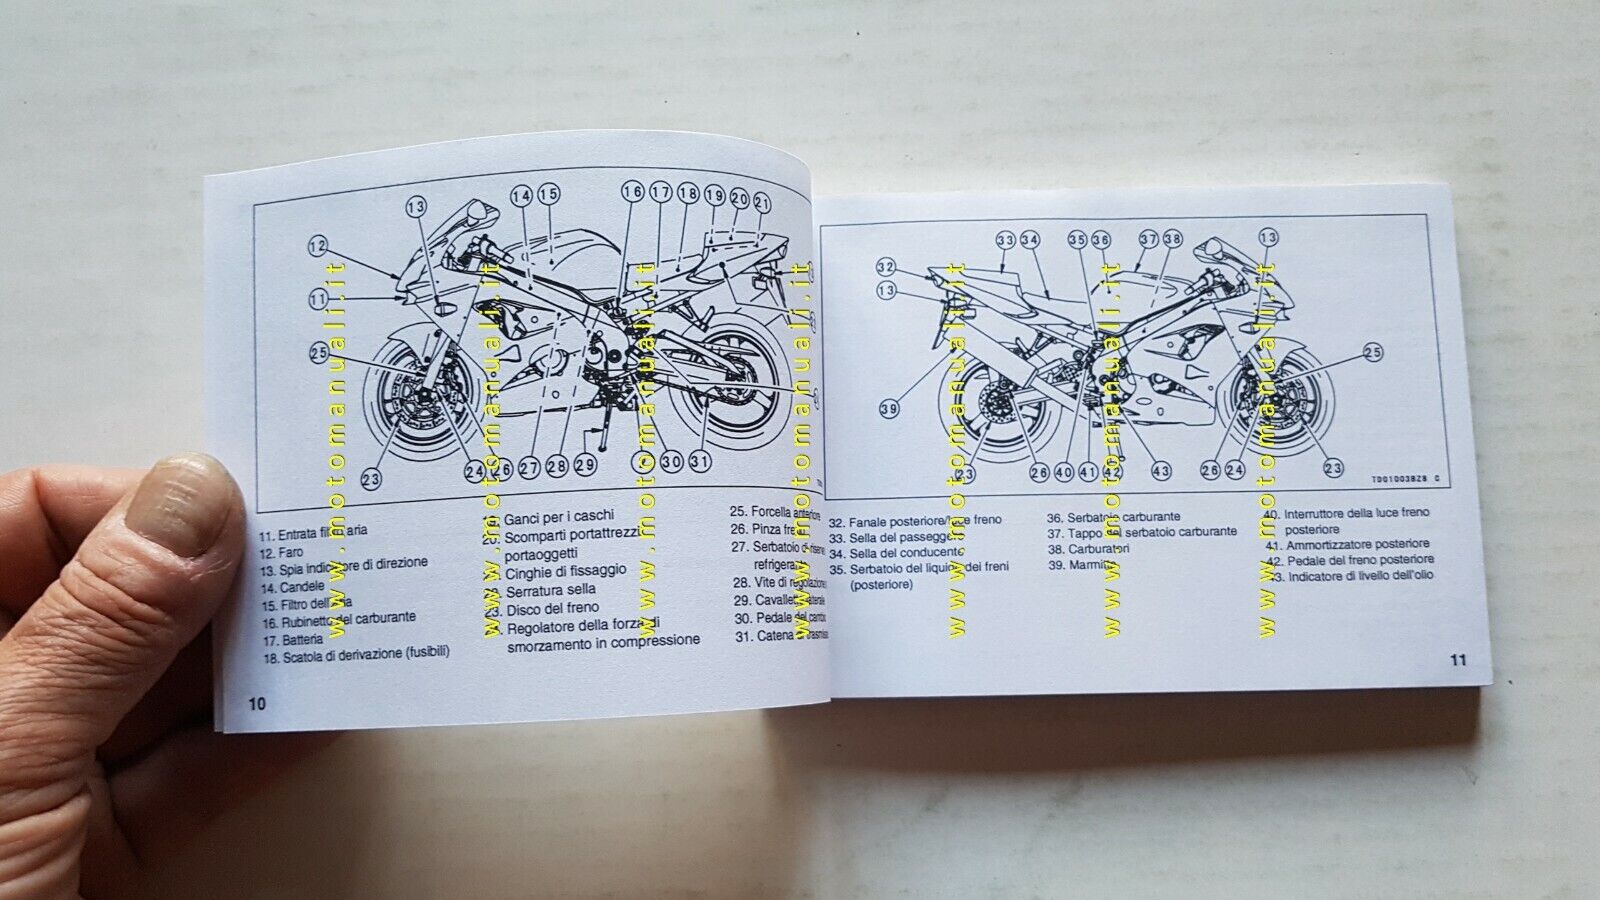 13
14
15
16
17
18
19
20
21
12
11
25
23
24
26
27
28
29
30
31
11. Entrata
aria
12. Faro
13. Spia
di direzione
14. Candele
15. Filtro
16. Rubinetto del carburante
17. Batteria
18. Scatola di derivazione (fusibili)
Ganci per i caschi
Scomparti portattrezzi
portaoggetti
Cinghie di fissaggio
Serratura sella
23. Disco del freno
Regolatore della forza di
smorzamento in compressione
25. Forcella anteriore
26. Pinza
27. Serbatoio
28. Vite di
29.
30. Pedale del
31. Catena
10
33
34
35
36
37
38
13
32
13
25
39
23
26
40
41
42
43
26
24
23
TD01003828 C
32. Fanale posteriore/luce freno
33. Sella del
34. Sella del conducente
35. Serbatoio del liquido dei freni
(posteriore)
36. Serbatoio carburante
37. Tappo del serbatoio carburante
38. Carburatori
39. Marmitta
40. Interruttore della luce freno
posteriore
41. Ammortizzatore posteriore
42. Pedale del freno posteriore
43. Indicatore di livello dell'olio
11
www.motomanuali.it
www.motomanuali.it
www.motomanuali.it
www.motomanuali.it
www.motomanuali.it
www.motomanuali.it
www.motomanuali.it